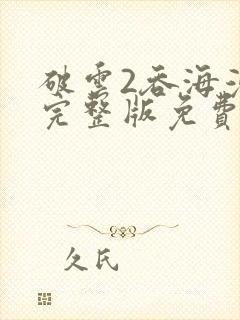 破雲2吞海
完整版免費
久氏